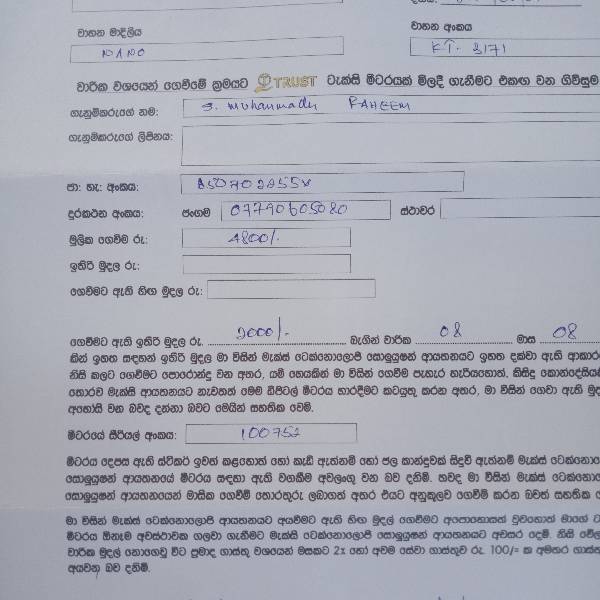 වාහන මාදිලිය
වාහන අංකය
NANO
KT-3171
වාරික වශයෙන් ගෙවීමේ ක්‍රමයට TRUST ටැක්සි මීටරයක් මිලදී ගැනීමට එකඟ වන ගිවිසුම
ගැනුම්කරුගේ නම: S. Muhammadu RAHEEM
ගැනුම්කරුගේ ලිපිනය:
ජා: හැ: අංකය: 850702855V
දුරකථන අංකය: ජංගම 07790605080 ස්ථාවර
මුලික ගෙවීම රු: 4800/-
ඉතිරි මුදල රු:
ගෙවීමට ඇති හිඟ මුදල රු:
ගෙවීමට ඇති ඉතිරි මුදල රු. 2000/- බැගින් වාරික 08 මාස 08
කින් ඉහත සඳහන් ඉතිරි මුදල මා විසින් මැක්ස් ටෙක්නොලොජි සොලුයුෂන් ආයතනයට ඉහත දක්වා ඇති ආකාර
නිසි කලට ගෙවීමට පොරොන්දු වන අතර, යම් හෙයකින් මා විසින් ගෙවීම පැහැර හැරියහොත්, කිසිදු කොන්දේසිය
තොරව මැක්සි ආයතනයට නැවතත් මෙම ඩිජිටල් මීටරය භාරදීමට කටයුතු කරන අතර, මා විසින් ගෙවා ඇති මුද
අහෝසි වන බවද දන්නා බවට මෙයින් සහතික වෙමි.
මීටරයේ සීරියල් අංකය: 100752
මීටරය දෙපස ඇති ස්ටිකර් ඉවත් කළහොත් හෝ කැඩී ඇත්නම් හෝ ජල කාන්දුවක් සිදුවී ඇත්නම් මැක්ස් ටෙක්නො
සොලුයුෂන් ආයතනයේ මීටරය සඳහා ඇති වගකීම අවලංගු වන බව දනිමි. තවද මා විසින් මැක්ස් ටෙක්නොලො
සොලුයුෂන් ආයතනයෙන් මාසික ගෙවීම් තොරතුරු ලබාගත් අතර එයට අනුකූලව ගෙවීම් කරන බවත් සහතික
මා විසින් මැක්ස් ටෙක්නොලොජි ආයතනයට අයවීමට ඇති හිඟ මුදල් ගෙවීමට අපොහොසත් වුවහොත් මාගේ ට
මීටරය ඕනෑම අවස්ථාවක ගලවා ගැනීමට මැක්සි ටෙක්නොලොජි සොලුයුෂන් ආයතනයට අවසර දෙමි. නිසි වේල
වාරික මුදල් නොගෙවූ විට ප්‍රමාද ගාස්තු වශයෙන් මසකට 2x හෝ අවම සේවා ගාස්තුව රු. 100/= ක අමතර ගාස්
අයවන බව දනිමි.